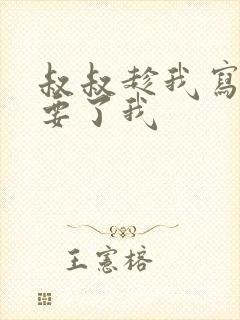 叔叔趁我寫
要了我
王憲榕